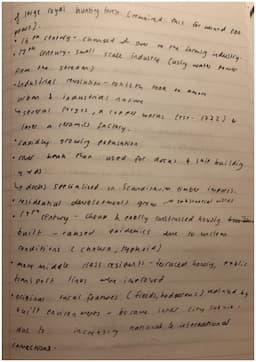 large royal hunting forest (remained this for around 500
years).
• 16th century - changed over to the farming industry.
• 17th century - small scale industry (using water power
from the stream)
• Industrial revolution - took on an more
urban & industrial nature
↳ several forges, a copper works (est. 1722) &
later a ceramics factory.
• rapidly growing population
• river bank then used for docks & ship building
yards
↳ docks specialised in Scandinavian timber imports.
• residential developments grew → substantial
• 19th century - cheap & poorly constructed housing
built - caused epidemics due to unclean
conditions (cholera, typhoid)
• more middle class residents - terraced housing, public
transport lines were improved
• original rural features (fields, hedgerows) replaced by
built environments - became inner city suburb
due to increasing national & international
connections.